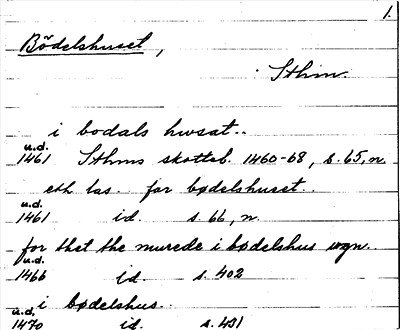 1.
Bödelshuset,
Sthm.
i bodals hwsat..
u.d.
1461 Sthms skotteb. 1460-68, s. 65, n.
eth las. for bødelshuset..
u.d.
1461 id. s. 66, n.
for thet the murede i bødelshus vgn..
u.d.
1466 id. s. 402
i bødelshus..
u.d.
1470 id. s. 431